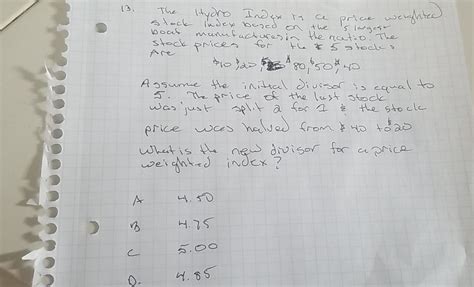 13. The Hydro Index is a price weighted
stock index based on the 5 largest
boat manufactures in the nation. The
stock prices for the 5 stocks
are
$10, 20, $80, $50, $40
Assume the initial divisor is equal to
5. The price of the last stock
was just split 2 for 1 & the stock
price was halved from $40 to $20
What is the new divisor for a price
weighted index?
A 4.50
B 4.75
C 5.00
D. 4.85